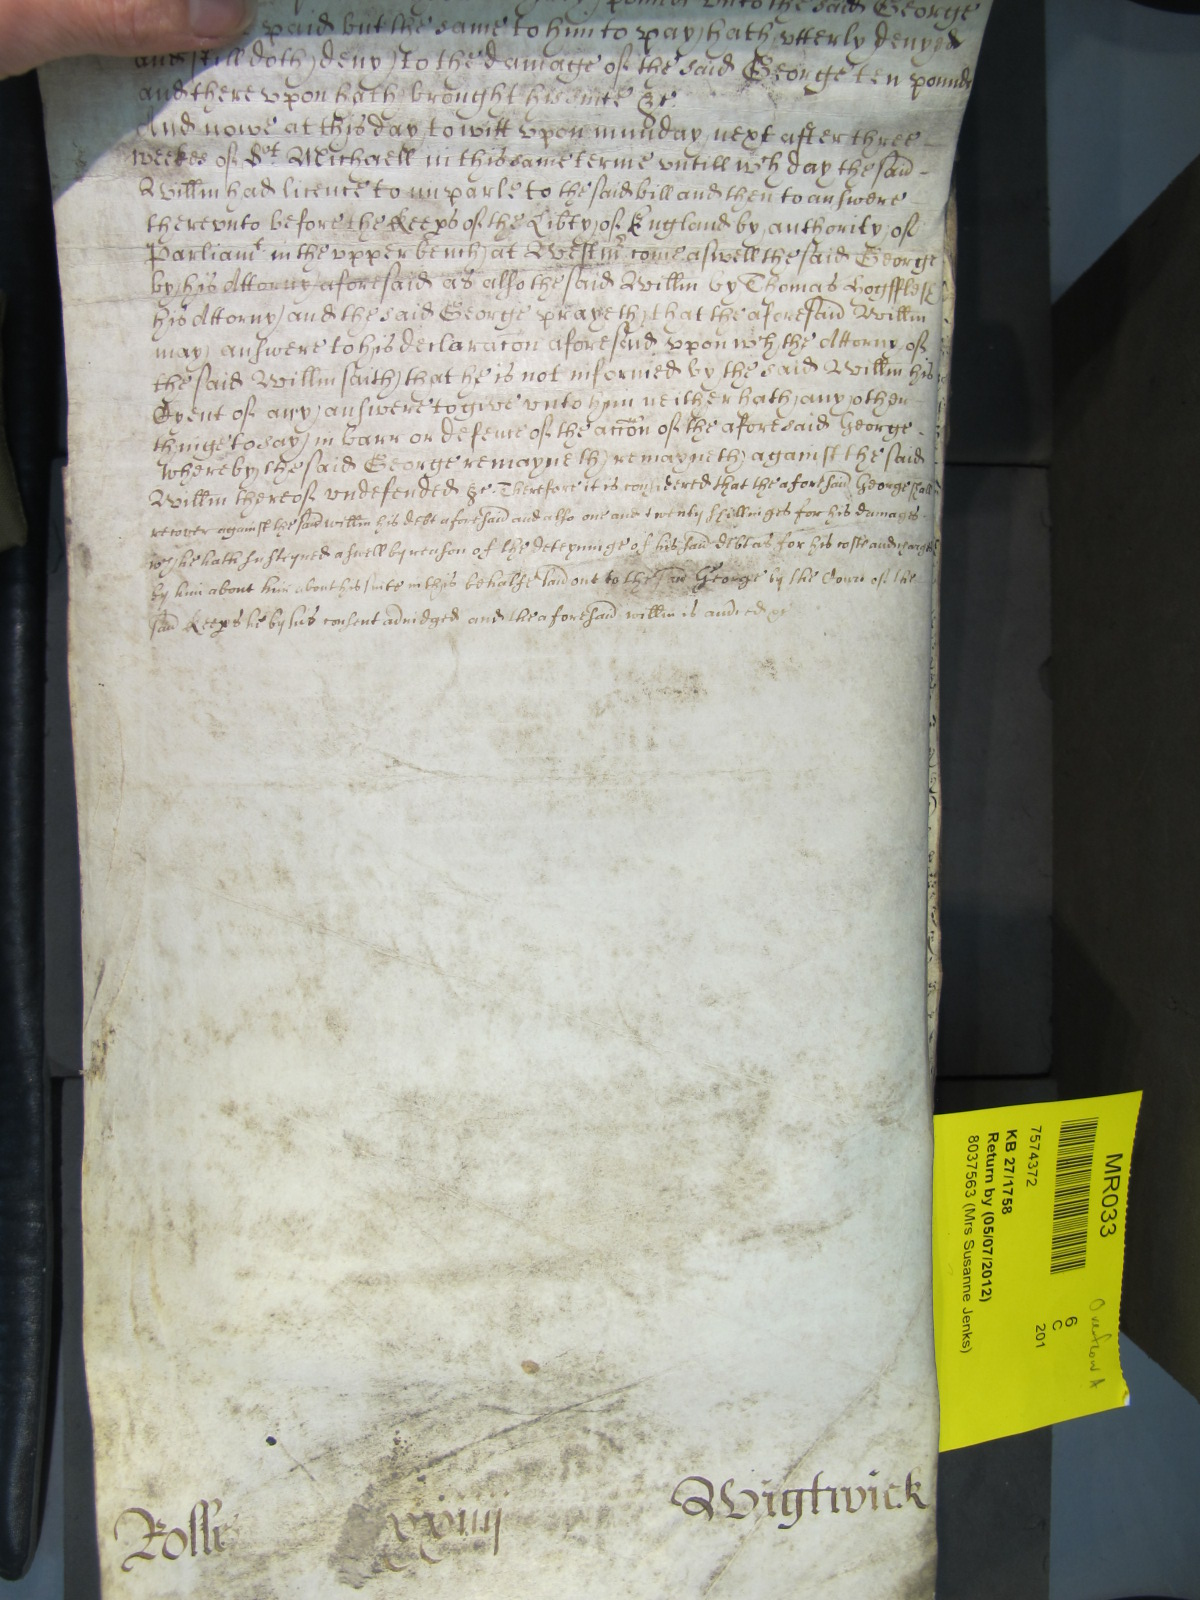 unto the said George
paid but the same to him to pay hath utterly denyed
and still doth deny to the damage of the said George ten pounds
and there upon hath brought his suite &c
And nowe at this day to witt upon munday next after three
weekes of St Michaell in this same terme untill wch day the said
Willm had licence to imparle to the said bill and then to answere
thereunto before the Keeps of the Libty of England by authority of
Parliamt in the upper bench at Westmr come aswell the said George
by his Attorny aforesaid as also the said Willm by Thomas
his Attorny and the said George prayeth that the aforesaid Willm
may answere to his declaracon aforesaid upon wch the Attorny of
the said Willm saith that he is not informed by the said Willm his
Clyent of any answere to give unto him neither hath any other
thinge to say in barr or defence of the accon of the aforesaid George
whereby the said George remayneth remayneth against the said
Willm thereof undefended &c Therefore it is considered that the aforesaid George shall
recover against the said willm his debt aforesaid and also one and twenty shillinges for his damages
wch he hath susteyned aswell by reason of the deteyninge of his said debt as for his costs and charges
by him about his suite in this behalfe laid out to the said George by the Court of the
said Keeps he by his consent adiudged and the aforesaid willm is &c
Rosse xxiiij Wigtwick
MR033
7574372
KB 27/1758
Return by (05/07/2012)
8037563 (Mrs Susanne Jenks)
6
C
201